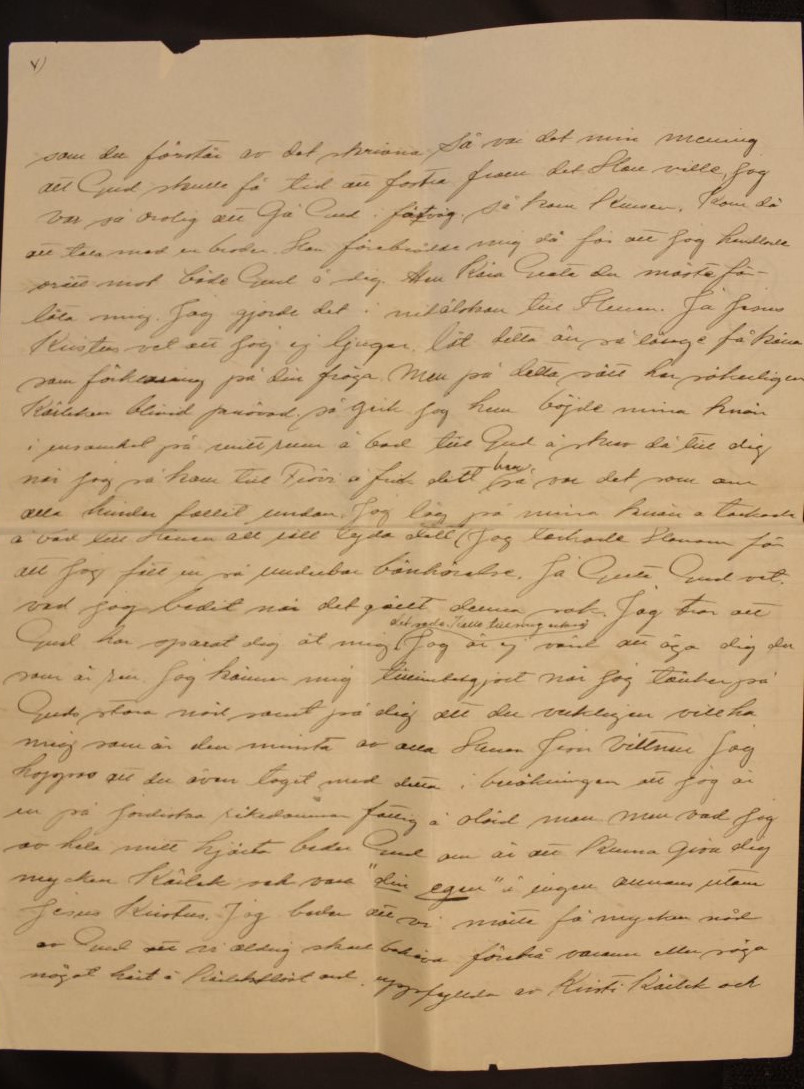 V)
som du förstår av det skrivna. Så var det min mening
att Gud skulle få tid att fostra fram det Han ville, Jag
var så orolig att Gå Gud i förväg. Så kom Kursen. Kom då
att tala med en broder. Han förebrådde mig då för att Jag handlade
orätt mot både Gud å dig. Kära Greta du måste för-
låta mig. Jag gjorde det i nitälskan till Herren. Ja Jesus
Kristus vet att Jag ej ljuger. låt detta än så länge få tjäna
som förklaring på din fråga. Men på detta sätt har säkerligen
Kärleken blivid prövad. så gick Jag hem böjde mina knän
i ensamhet på mitt rum å bad till Gud å skrev då till dig
när Jag så kom till å fick ditt brev så var det som om
alla hinder fallit undan. Jag låg på mina knän å tackade
å bad till Herren att rätt tyda ditt (Jag tackade Honom för
att Jag fått en så underbar bönhörelse. Ja Greta Gud vet.
vad jag bedit när det gällt denna sak. Jag tror att
Gud har sparat dig åt mig (Jag är ej värd att äga dig du
som är ren. Jag känner mig tillintetgjort när Jag tänker på
Guds stora nåd samt på dig att du verkligen vill ha
mig som är den minsta av alla Herren Jesu Vittnen Jag
hoppas att du även tagit med detta i beräkningen att Jag är
en på Jordiska rikedomar fattig å olärd man men vad Jag
av hela mitt hjärta beder Gud om är att kunna giva dig
mycken Kärlek och vara "din egen" å ingen annans utom
Jesus Kristus. Jag beder att vi måtte få mycken nåd
av Gud att vi aldrig skall behöva förebrå varann eller säga
något hårt å kärlekslöst ord. uppfyllda av Kristi Kärlek och